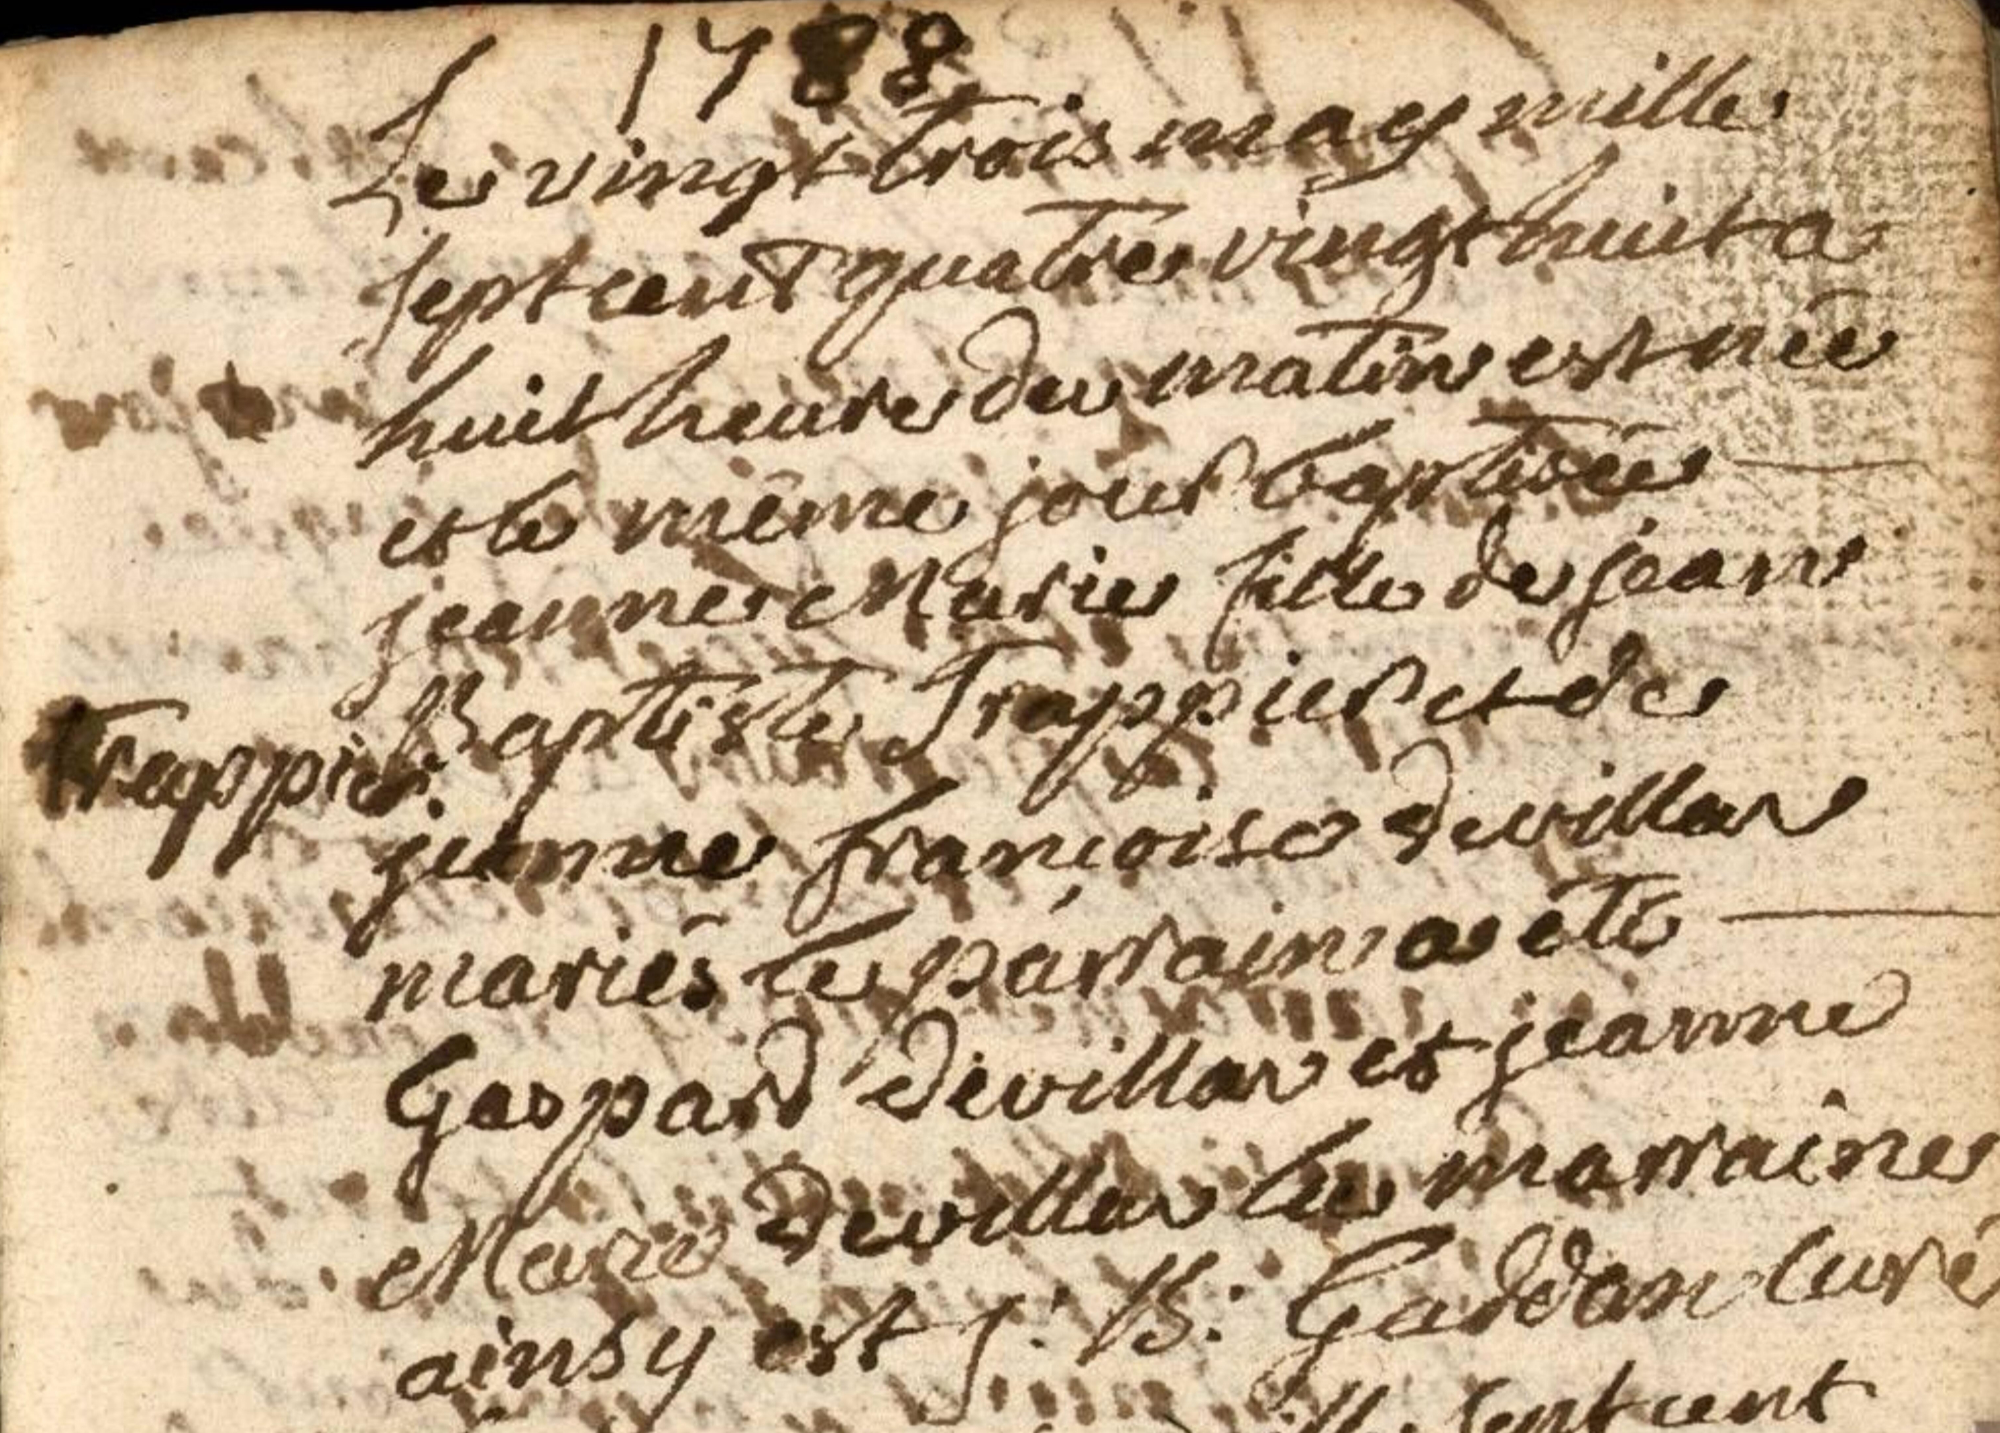 1788
Le vingt trois may mille
sept cent quatre vingt huit a
huit heure du matin est née
et le même jour baptisée
jeanne Marie fille de jean
Baptiste Trappier et de
Trappier
jeanne françoise Devillar
mariés le parrain a été
Gaspard Devillar et jeanne
Marie Devillar la marraine
ainsy est J: B: Gaddan Curé
mille sept cent